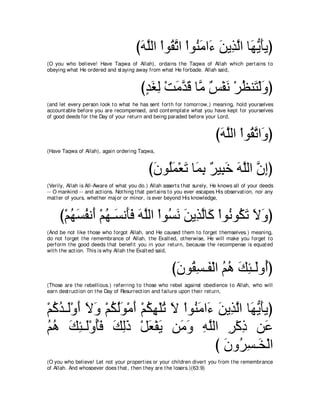 (يَأَيُّهَا الَّذِينَ ءَامَنُواْ اتَّقُواْ اللَّهَ)
(O you who believe! Have Taqwa of Allah), ordains the Taqwa of Allah which pertains to
obeying what He ordered and staying away from what He forbade. Allah said,
(وَلْتَنظُرْ نَفْسٌ مَّا قَدَّمَتْ لِغَدٍ)
(and let every person look to what he has sent forth for tomorrow,) meaning, hold yourselves
accountable before you are recompensed, and contemplate what you have kept for yourselves
of good deeds for the Day of your return and being paraded before your Lord,
(وَاتَّقُواْ اللَّهَ)
(Have Taqwa of Allah), again ordering Taqwa,
(إِنَّ اللَّهَ خَبِيرٌ بِمَا تَعْمَلُونَ)
(Verily, Allah is All-Aware of what you do.) Allah asserts that surely, He knows all of your deeds
-- O mankind -- and actions. Nothing that pertains to you ever escapes His observation, nor any
matter of yours, whether major or minor, is ever beyond His knowledge,
(وَلاَ تَكُونُواْ كَالَّذِينَ نَسُواْ اللَّهَ فَأَنسَـهُمْ أَنفُسَهُمْ)
(And be not like those who forgot Allah, and He caused them to forget themselves.) meaning,
do not forget the remembrance of Allah, the Exalted, otherwise, He will make you forget to
perform the good deeds that benefit you in your return, because the recompense is equated
with the action. This is why Allah the Exalted said,
(أُولَـئِكَ هُمُ الْفَـسِقُونَ)
(Those are the rebellious.) referring to those who rebel against obedience to Allah, who will
earn destruction on the Day of Resurrection and failure upon their return,
(يأَيُّهَا الَّذِينَ ءَامَنُواْ لاَ تُلْهِكُمْ أَمْوَلُكُمْ وَلاَ أَوْلَـدُكُمْ
عَن ذِكْرِ اللَّهِ وَمَن يَفْعَلْ ذَلِكَ فَأُوْلَـئِكَ هُمُ
الْخَـسِرُونَ )
(O you who believe! Let not your properties or your children divert you from the remembrance
of Allah. And whosoever does that, then they are the losers.)(63:9)